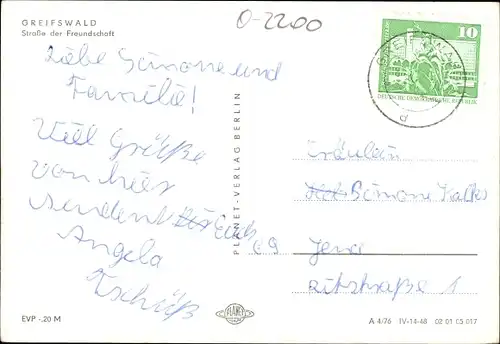 GREIFSWALD
Straße der Freundschaft
0-2200
10
GREIFSWALD
DEUTSCHE DEMOKRATISCHE REPUBLIK
Liebe Simone und
Familie!
Viel Grüße
von hier
sendent Euch
Angela
Tschüß
PLANET-VERLAG BERLIN
Fräulein
Simone
69 Jena
1
EVP -.20 M
PLANET
A 4/76 IV-14-48 02 01 05 017